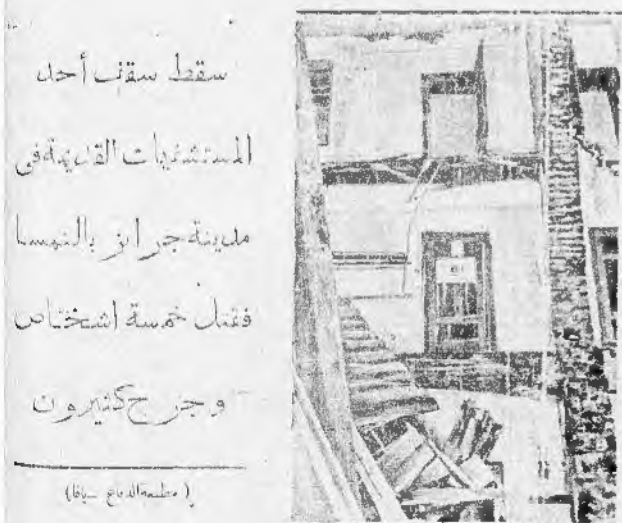 سقط سقف أحد
المستشفيات القديمة فى
مدينة جراتز بالنمسا
فقتل خمسة اشخاص
وجرح كثيرون
(مطبعة الدفاع بيافا)